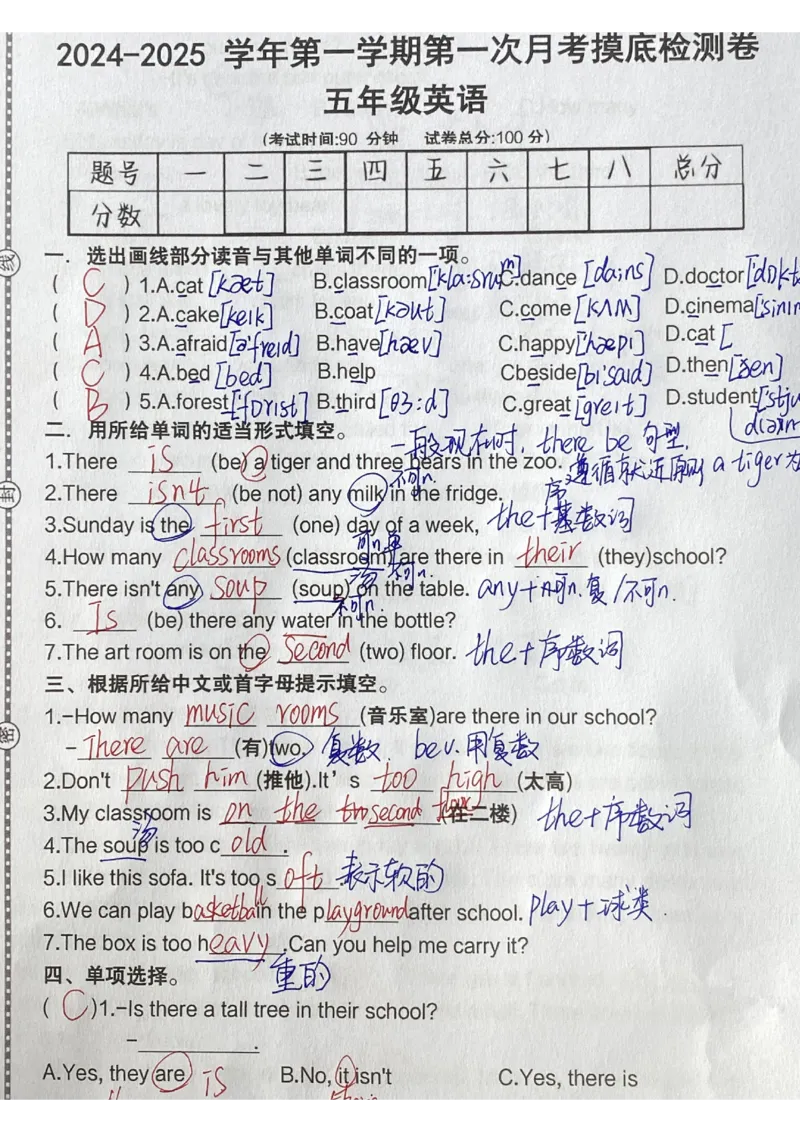 2024-2025 学年第一学期第一次月考摸底检测卷
五年级英语
(考试时间:90 分钟 试卷总分:100 分)
题号 一 二 三 四 五 六 七 八 总分
分数
一. 选出画线部分读音与其他单词不同的一项。
( C ) 1.A.cat [kæt] B.classroom C.dance [dɑins] D.doctor
( D ) 2.A.cake [keik] B.coat [kəut] C.come [kʌm] D.cinema
( A ) 3.A.afraid [ə'freid] B.have [hæv] C.happy ['hæpi] D.cat [
( C ) 4.A.bed [bed] B.help Cbeside [bi'said] D.then
( B ) 5.A.forest ['fɒrist] B.third [θɜ:d] C.great [greit] D.student
二. 用所给单词的适当形式填空。
一般现在时, there be 句型,
1.There is (be) a tiger and three bears in the zoo. 遵循就近原则 a tiger为
2.There isn't (be not) any milk in the fridge. 不可n.
3.Sunday is the first (one) day of a week, the+序数词
4.How many classrooms (classroom) are there in their (they)school?
5.There isn't any soup (soup) on the table. any+可n.复/不可n.
6. Is (be) there any water in the bottle? 不可n.
7.The art room is on the Second (two) floor. the+序数词
三、根据所给中文或首字母提示填空。
1.-How many music rooms (音乐室)are there in our school?
-There are (有)two. 复数, be v.用复数
2.Don't push him (推他).It's too high (太高)
3.My classroom is on the second floor (在二楼) the+序数词
4.The soup is too c old . 汤
5.I like this sofa. It's too s oft . 表示软的
6.We can play b asketball in the p layground after school. play+球类.
7.The box is too h eavy .Can you help me carry it?
四、单项选择。 重的
( C )1.-Is there a tall tree in their school?
- .
A.Yes, they are is B.No, it isn't C.Yes, there is